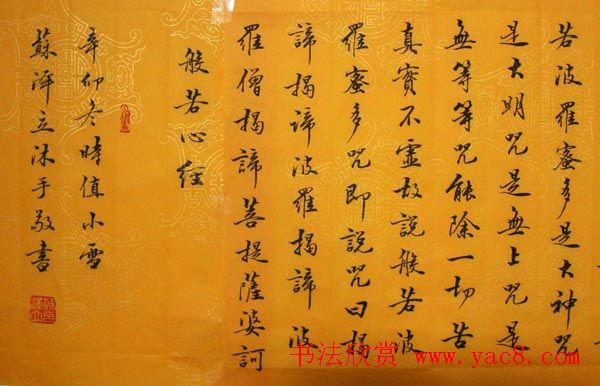 若波羅蜜多是大神咒
是大明咒是無上咒是
無等等咒能除一切苦
真實不虛故說般若波
羅蜜多咒即說咒曰揭
諦揭諦波羅揭諦波
羅僧揭諦菩提薩婆訶
般若心經
辛卯冬時值小雪
蘇澤立沐手敬書
书法欣赏 www.yac8.com